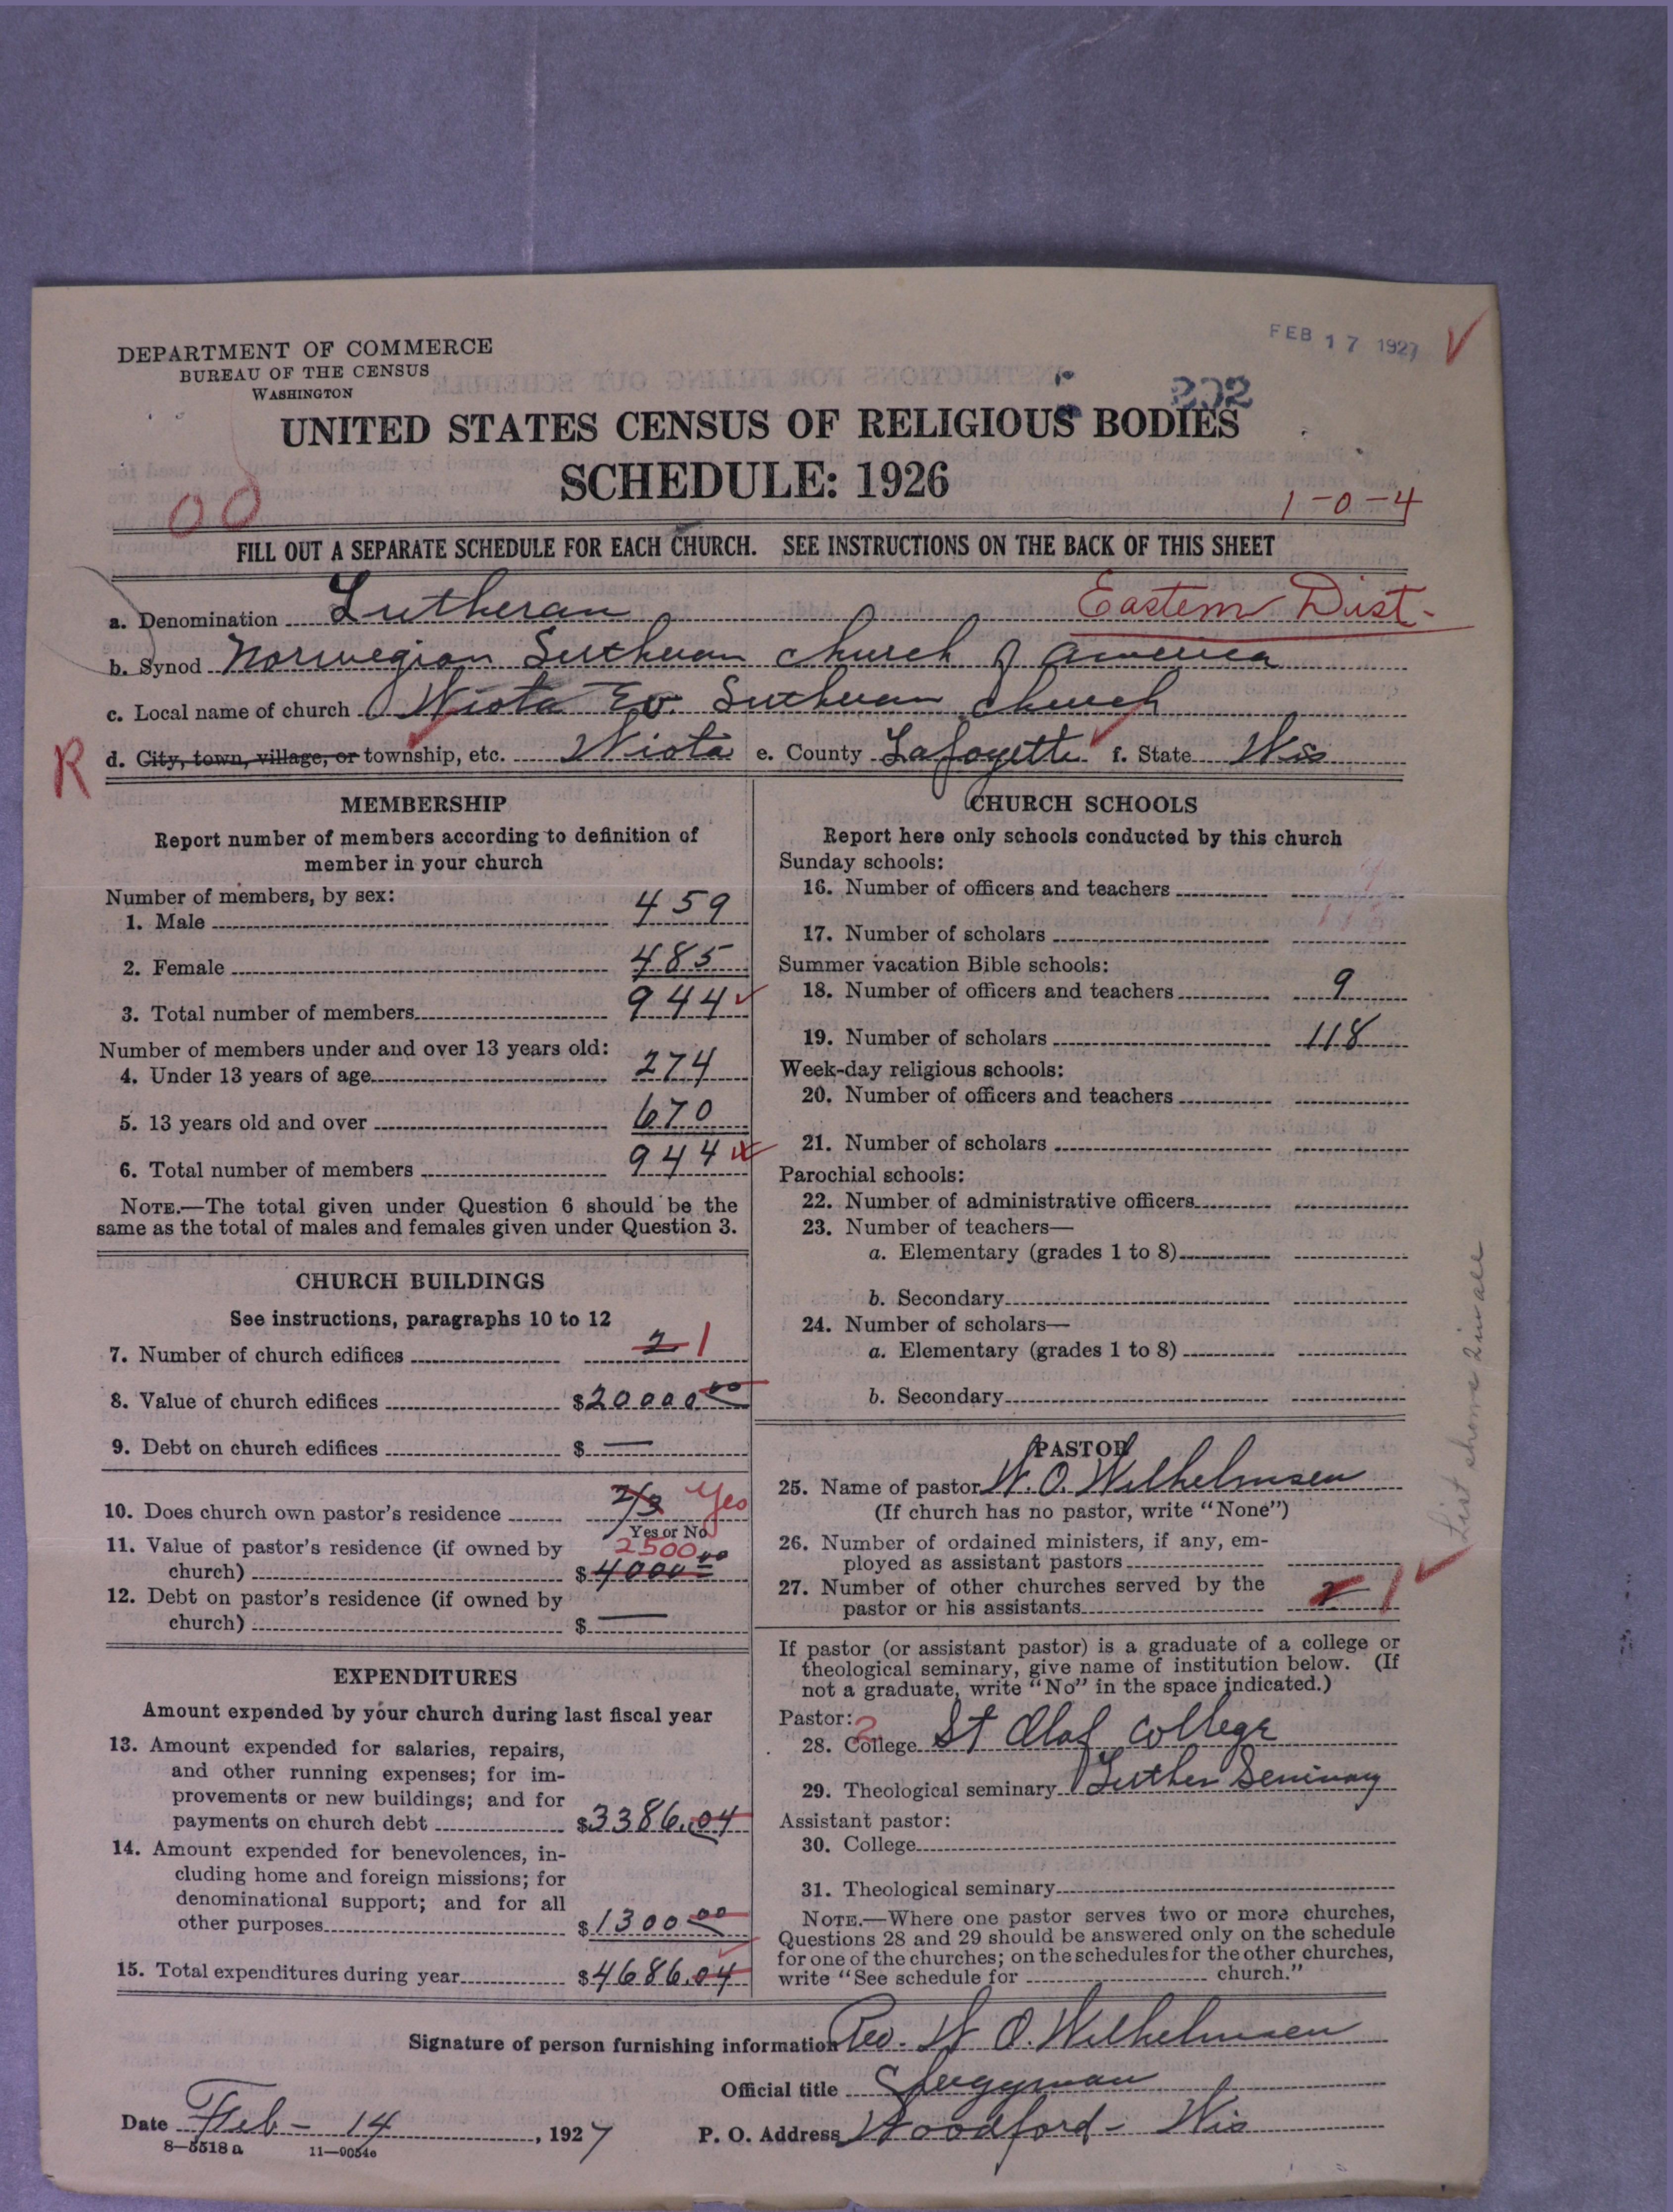 FEB 17 1927
DEPARTMENT OF COMMERCE
BUREAU OF THE CENSUS
WASHINGTON
202
UNITED STATES CENSUS OF RELIGIOUS BODIES
SCHEDULE: 1926
00
1-0-4
FILL OUT A SEPARATE SCHEDULE FOR EACH CHURCH. SEE INSTRUCTIONS ON THE BACK OF THIS SHEET
a. Denomination Lutheran Eastern Dist.
b. Synod Norwegian Lutheran church of America
c. Local name of church Wiota Ev. Lutheran Church
R d. City, town, village, or township, etc. Wiota e. County Lafayette f. State Wis
MEMBERSHIP
Report number of members according to definition of
member in your church
Number of members, by sex:
1. Male 459
2. Female 485
3. Total number of members 944
Number of members under and over 13 years old:
4. Under 13 years of age 274
5. 13 years old and over 670
6. Total number of members 944
NOTE.—The total given under Question 6 should be the
same as the total of males and females given under Question 3.
CHURCH BUILDINGS
See instructions, paragraphs 10 to 12
7. Number of church edifices 2 1
8. Value of church edifices $20000.00
9. Debt on church edifices $ —
10. Does church own pastor's residence 2/3 Yes
Yes or No
11. Value of pastor's residence (if owned by 2500
church) $4000.00
12. Debt on pastor's residence (if owned by
church) $ —
EXPENDITURES
Amount expended by your church during last fiscal year
13. Amount expended for salaries, repairs,
and other running expenses; for im-
provements or new buildings; and for
payments on church debt $3386.04
14. Amount expended for benevolences, in-
cluding home and foreign missions; for
denominational support; and for all
other purposes $1300.00
15. Total expenditures during year $4686.04
CHURCH SCHOOLS
Report here only schools conducted by this church
Sunday schools:
16. Number of officers and teachers
17. Number of scholars
Summer vacation Bible schools:
18. Number of officers and teachers 9
19. Number of scholars 118
Week-day religious schools:
20. Number of officers and teachers
21. Number of scholars
Parochial schools:
22. Number of administrative officers
23. Number of teachers—
a. Elementary (grades 1 to 8)
b. Secondary
24. Number of scholars—
a. Elementary (grades 1 to 8)
b. Secondary
PASTOR
25. Name of pastor W. O. Wilhelmsen
(If church has no pastor, write "None")
26. Number of ordained ministers, if any, em-
ployed as assistant pastors
27. Number of other churches served by the
pastor or his assistants 2 1
If pastor (or assistant pastor) is a graduate of a college or
theological seminary, give name of institution below. (If
not a graduate, write "No" in the space indicated.)
Pastor: 2
28. College St Olaf College
29. Theological seminary Luther Seminary
Assistant pastor:
30. College
31. Theological seminary
NOTE.—Where one pastor serves two or more churches,
Questions 28 and 29 should be answered only on the schedule
for one of the churches; on the schedules for the other churches,
write "See schedule for church."
List shows 2 in all
Signature of person furnishing information Rev. W O. Wilhelmsen
Official title Clergyman
Date Feb - 14, 1927 P. O. Address Woodford - Wis
8—5518 a 11—9054e